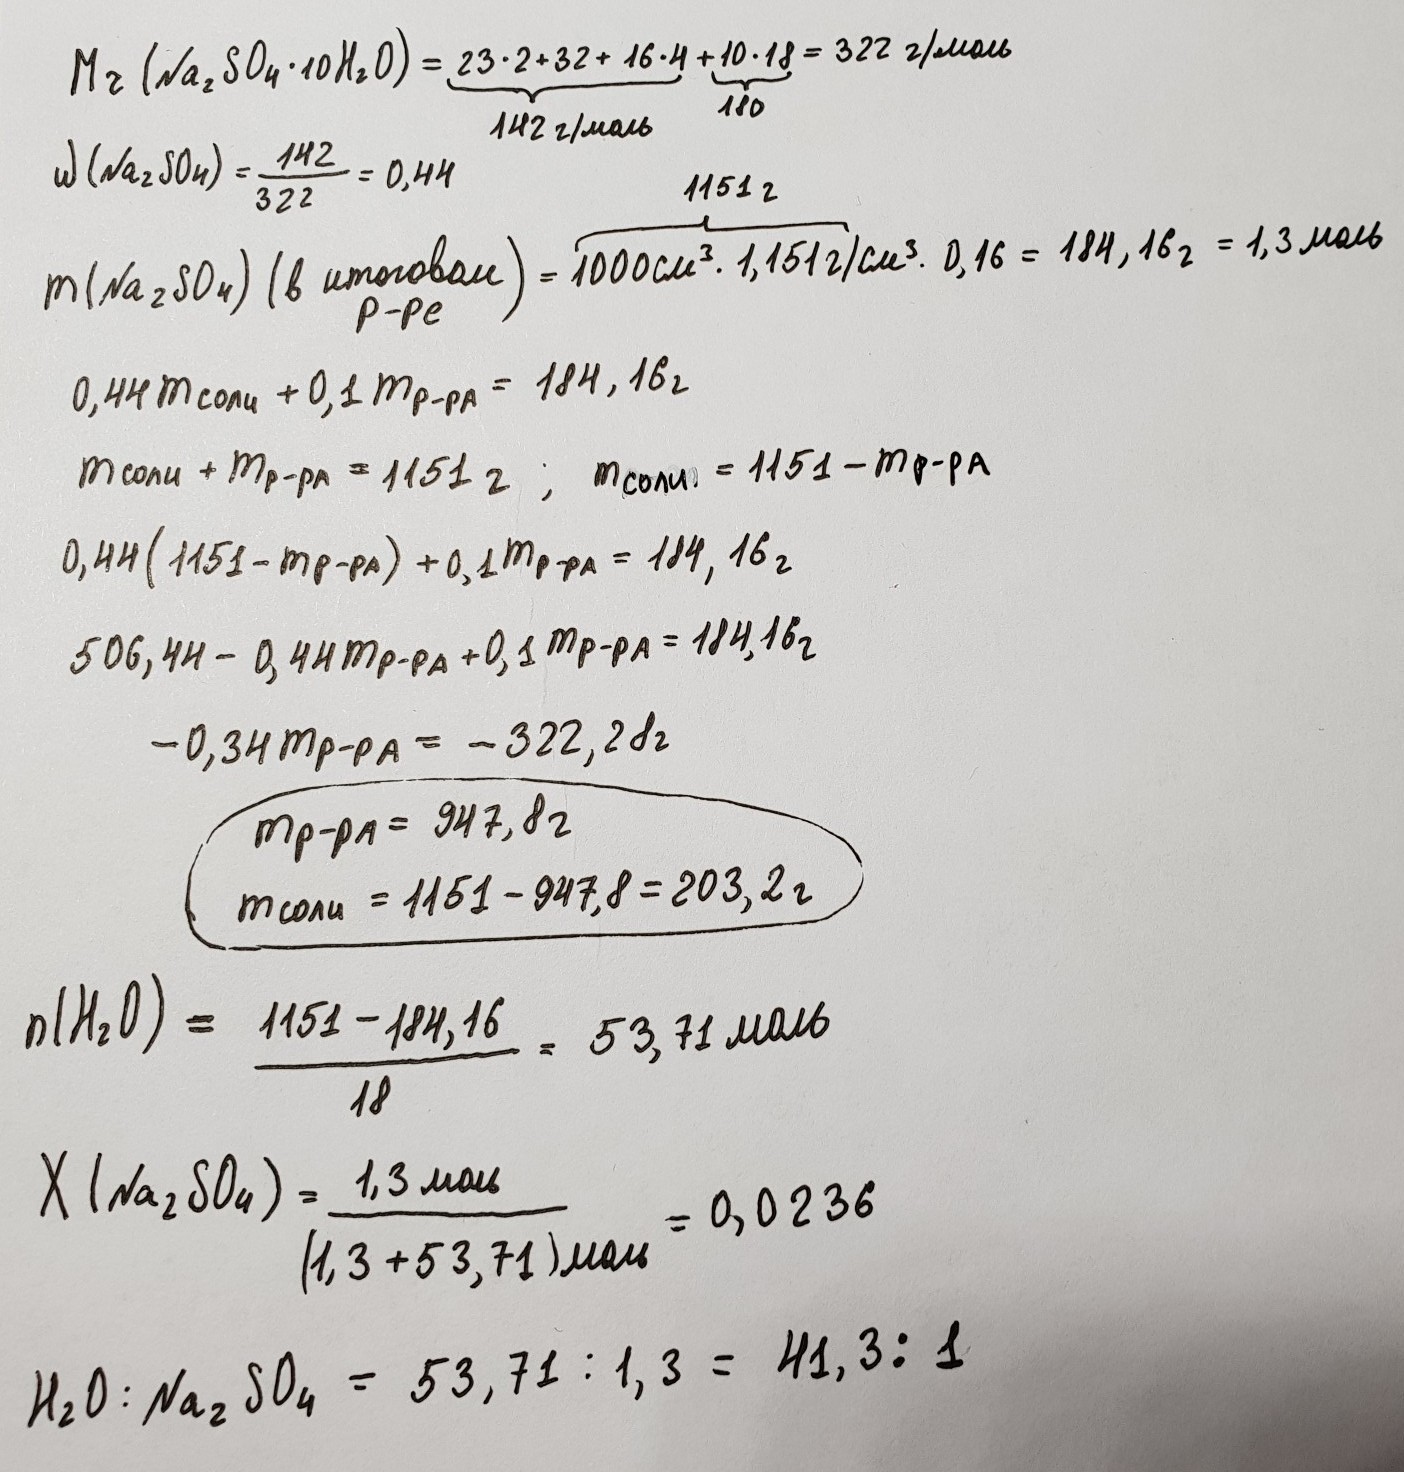 Mr (Na₂SO₄·10H₂O) = 23·2+32+16·4+10·18 = 322 г/моль
142 г/моль 180
ω(Na₂SO₄) = 142/322 = 0,44
1151 г
m(Na₂SO₄) (в итоговом р-ре) = 1000см³·1,151г/см³·0,16 = 184,16г = 1,3 моль
0,44 mсоли + 0,1 mр-ра = 184,16г
mсоли + mр-ра = 1151 г ; mсоли = 1151 - mр-ра
0,44(1151 - mр-ра) + 0,1 mр-ра = 184,16г
506,44 - 0,44 mр-ра + 0,1 mр-ра = 184,16г
-0,34 mр-ра = -322,28г
mр-ра = 947,8г
mсоли = 1151 - 947,8 = 203,2г
n(H₂O) = (1151 - 184,16)/18 = 53,71 моль
X(Na₂SO₄) = 1,3 моль/(1,3+53,71)моль = 0,0236
H₂O : Na₂SO₄ = 53,71 : 1,3 = 41,3 : 1